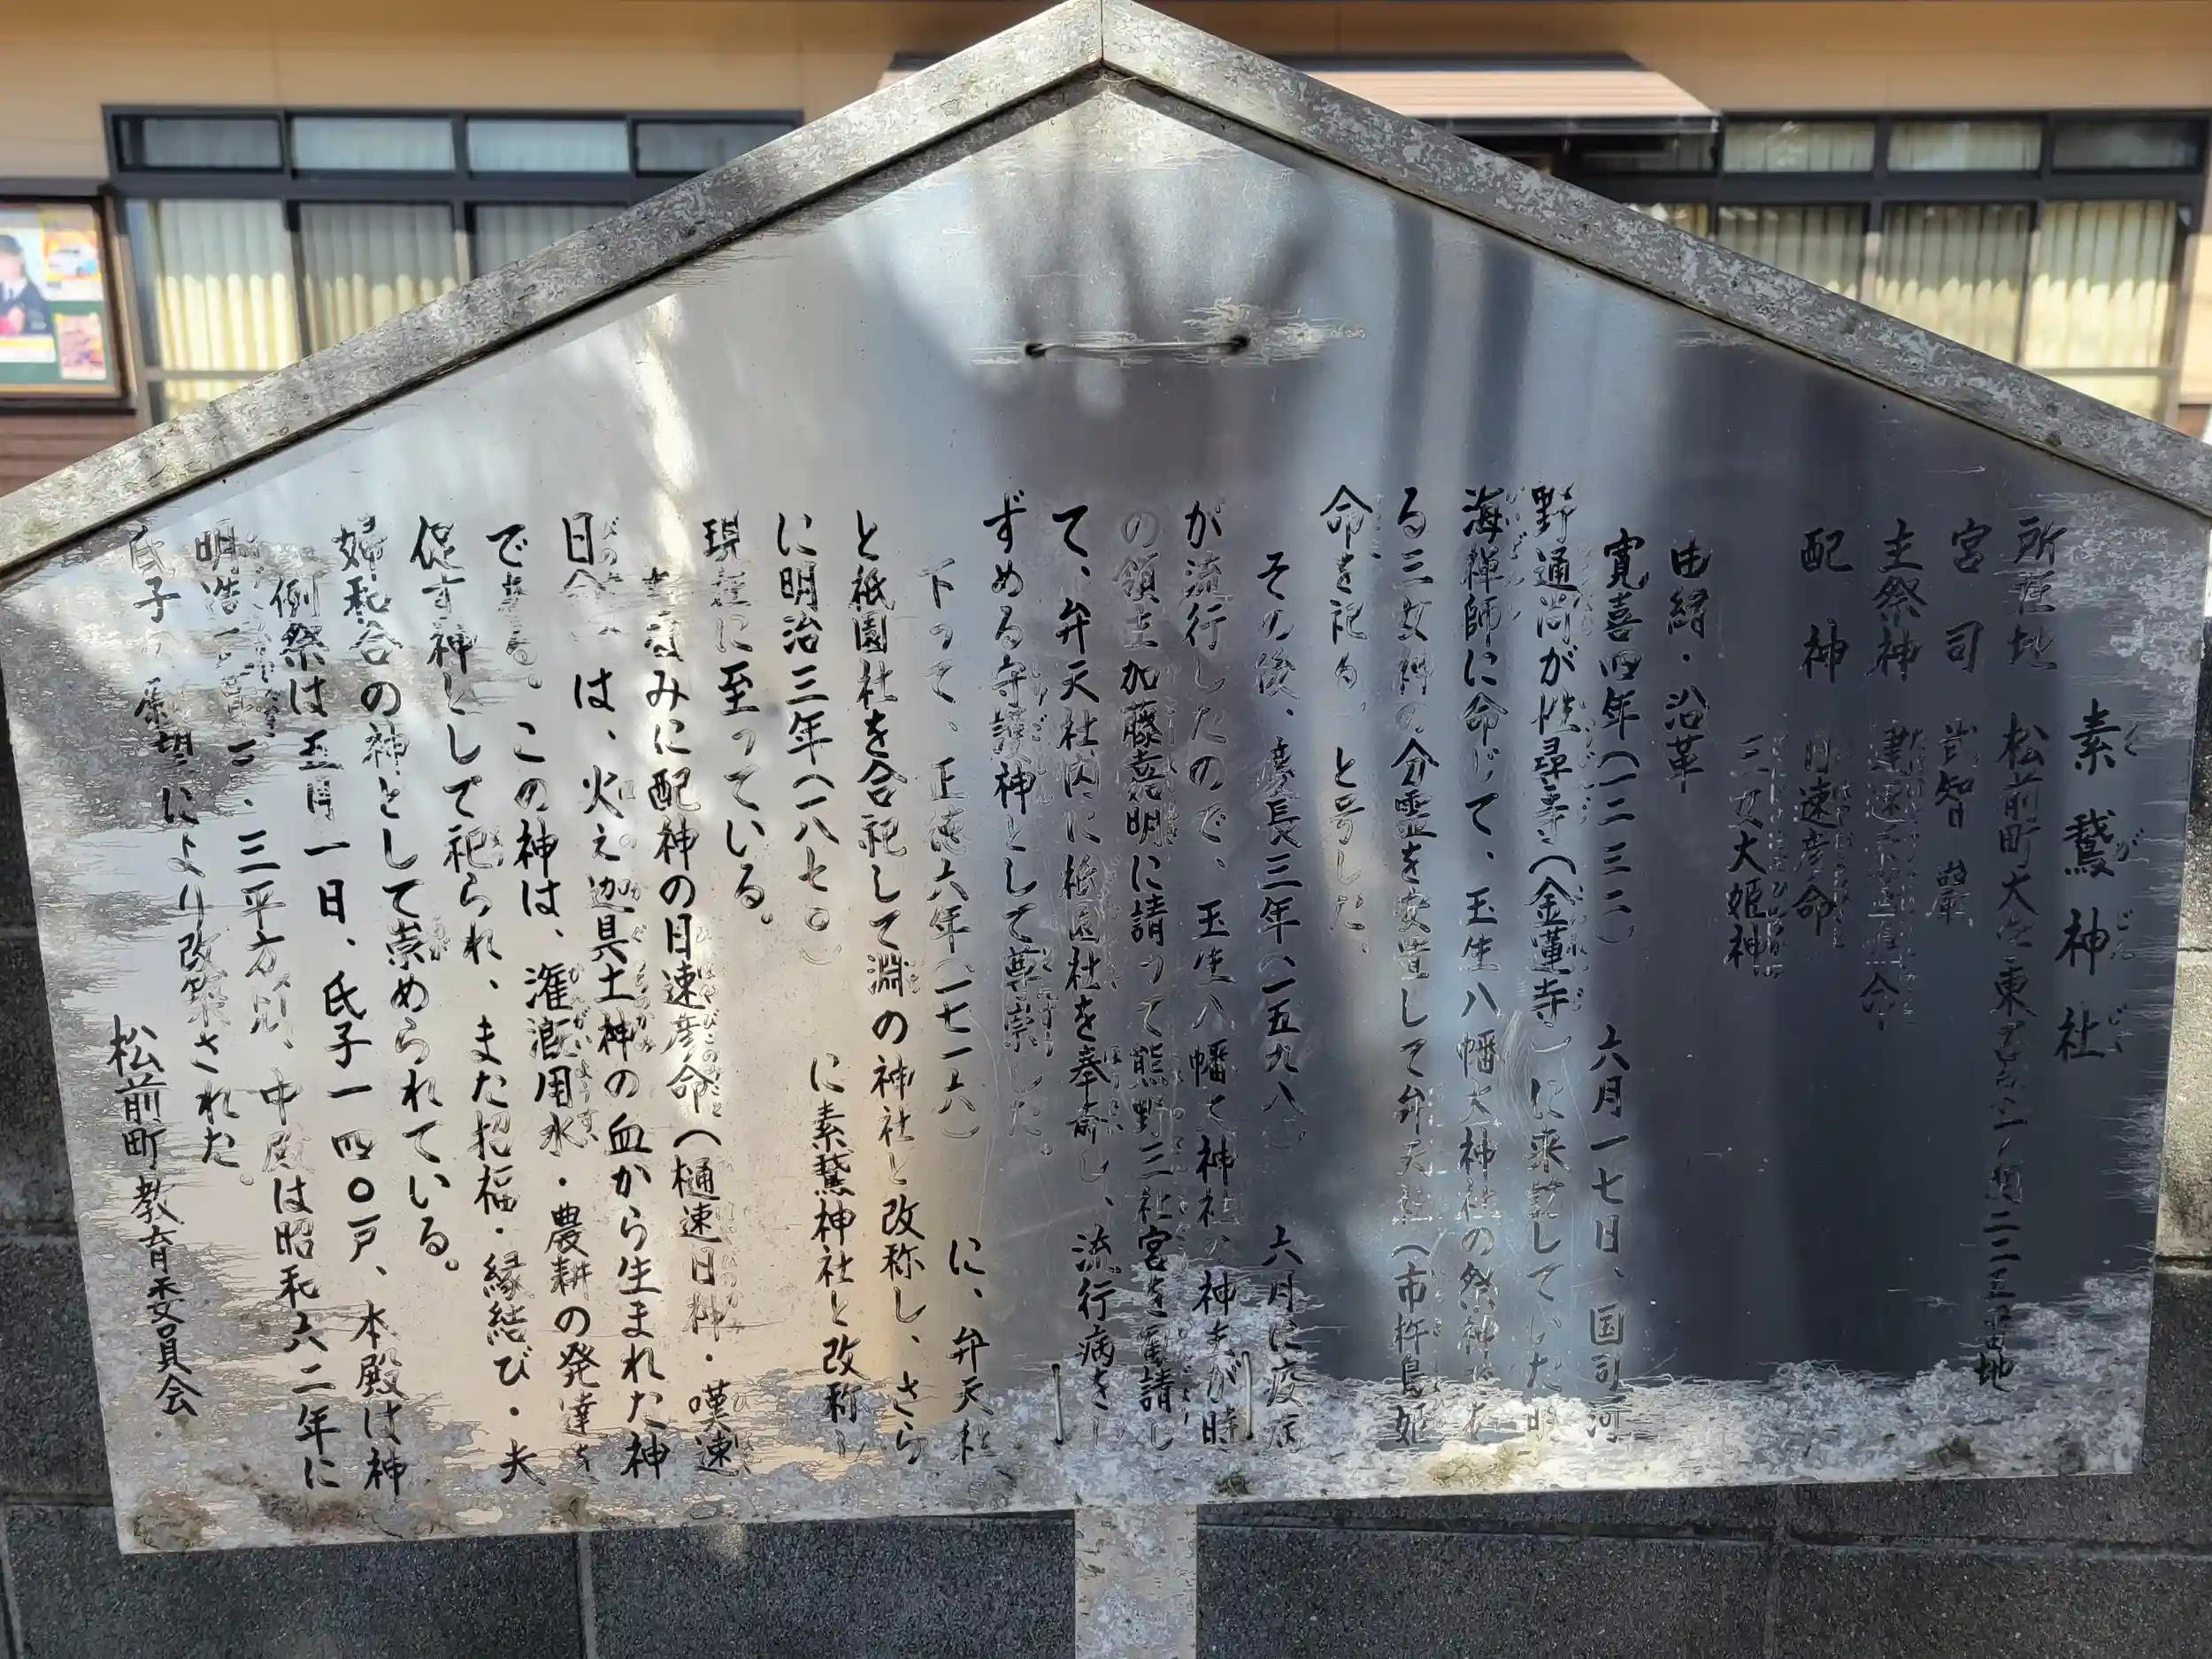 素鵞神社
所在地 松前町大 東
宮司 武智
主祭神 建速 命
配神 日速彦命
三女大姫神
由緒・沿革
寛喜四年(一二三二) 六月一七日、国司河
野通尚が性尋寺(金蓮寺)に来 していた
海禅師に命じて、玉生八幡大神社の祭神
る三女神の分霊を安置して弁天社(市杵島姫
命を祀る。と号した。
その後、慶長三年(一五九八) 六月に疫病
が流行したので、玉生八幡大神社の神 が時
の領主加藤嘉明に請って熊野三社宮を勧請し
て、弁天社内に祇園社を奉斎し、流行病をし
ずめる守護神として尊崇した。
下って、正徳六年(一七一六) に、弁天社
と祇園社を合祀して淵の神社と改称し、さら
に明治三年(一八七〇) に素鵞神社と改称し
現在に至っている。
ちなみに配神の日速彦命(樋速日神・嘆速
日命 は、火之迦具土神の血から生まれた神
である。この神は、潅漑用水・農耕の発達を
促す神として祀られ、また招福・縁結び・夫
婦和合の神として崇められている。
例祭は五月一日、氏子一四〇戸、本殿は神
明造 三平方 、中殿は昭和六二年に
氏子の希望により改築された。
松前町教育委員会